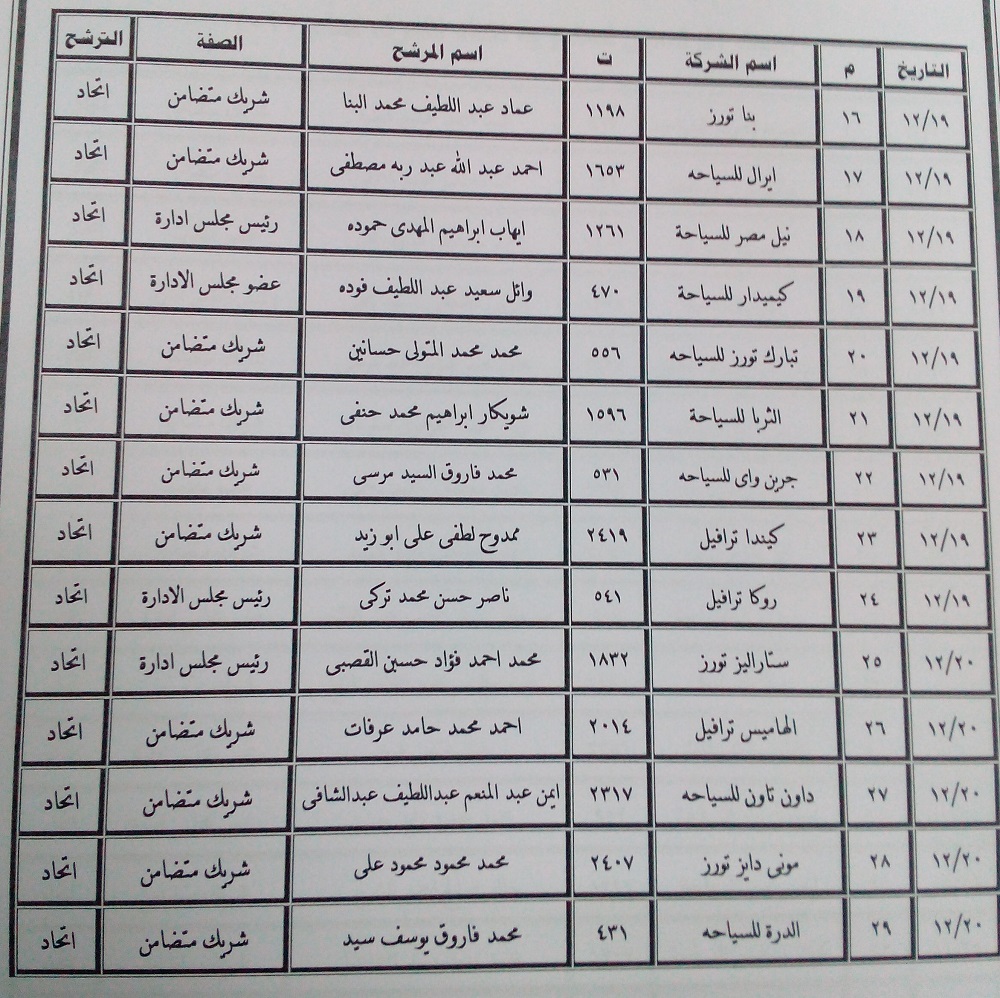 التاريخ م اسم الشركة ت اسم المرشح الصفة الترشح
١٢/١٩ ١٦ بنا تورز ١١٩٨ عماد عبد اللطيف محمد البنا شريك متضامن اتحاد
١٢/١٩ ١٧ ايرال للسياحه ١٦٥٣ احمد عبد الله عبد ربه مصطفى شريك متضامن اتحاد
١٢/١٩ ١٨ نيل مصر للسياحة ١٢٦١ ايهاب ابراهيم المهدى حموده رئيس مجلس ادارة اتحاد
١٢/١٩ ١٩ كيميدار للسياحة ٤٧٠ وائل سعيد عبد اللطيف فوده عضو مجلس الادارة اتحاد
١٢/١٩ ٢٠ تبارك تورز للسياحه ٥٥٦ محمد محمد المتولى حسانين شريك متضامن اتحاد
١٢/١٩ ٢١ الثريا للسياحة ١٥٩٦ شويكار ابراهيم محمد حنفى شريك متضامن اتحاد
١٢/١٩ ٢٢ جرين واى للسياحه ٥٣١ محمد فاروق السيد مرسى شريك متضامن اتحاد
١٢/١٩ ٢٣ كيندا ترافيل ٢٤١٩ ممدوح لطفى على ابو زيد شريك متضامن اتحاد
١٢/١٩ ٢٤ روكا ترافيل ٥٤١ ناصر حسن محمد تركى رئيس مجلس الادارة اتحاد
١٢/٢٠ ٢٥ ستاراليز تورز ١٨٣٢ محمد احمد فؤاد حسين القصبى رئيس مجلس ادارة اتحاد
١٢/٢٠ ٢٦ الهاميس ترافيل ٢٠١٤ احمد محمد حامد عرفات شريك متضامن اتحاد
١٢/٢٠ ٢٧ داون تاون للسياحه ٢٣١٧ ايمن عبد المنعم عبداللطيف عبدالشافى شريك متضامن اتحاد
١٢/٢٠ ٢٨ مونى دايز تورز ٢٤٠٧ محمد محمود محمود على شريك متضامن اتحاد
١٢/٢٠ ٢٩ الدرة للسياحه ٤٣١ محمد فاروق يوسف سيد شريك متضامن اتحاد